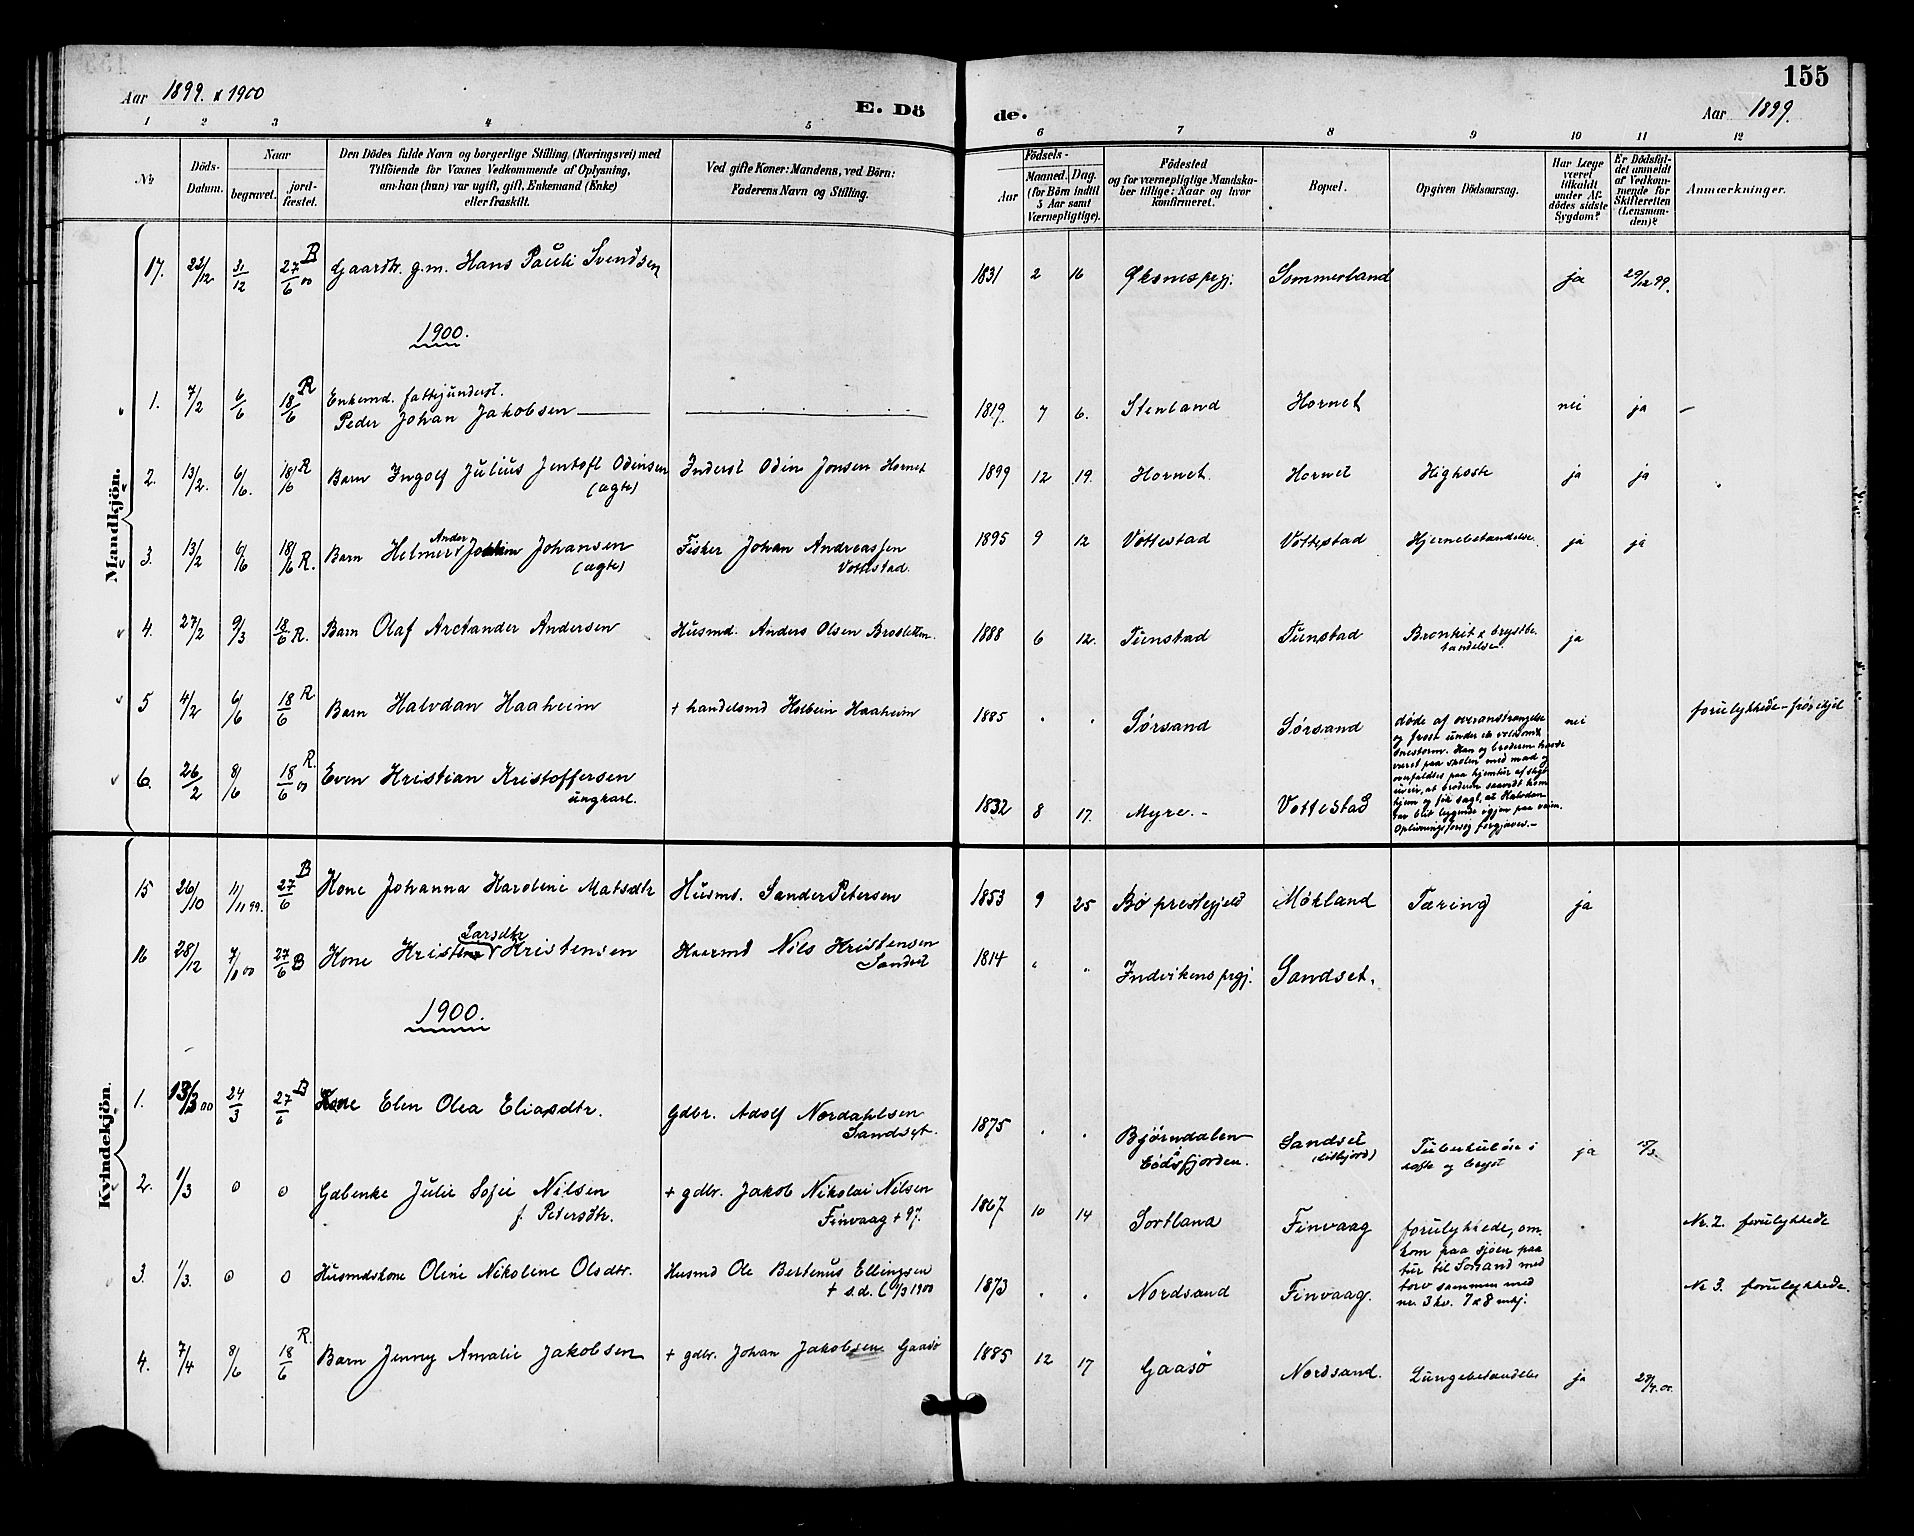 Aar 1899. & 1900
E. Dö
de.
155
Aar 1899.
1 2 3 4 5 6 7 8 9 10 11 12
No
Döds-Datum.
Naar
begravet.
jord-fæstet.
Den Dödes fulde Navn og borgerlige Stilling, (Næringsvei) med
Tilföiende for Voxnes Vedkommende af Oplysning,
om han (hun) var ugift, gift, Enkemand (Enke)
eller fraskilt.
Ved gifte Koner: Mandens, ved Börn:
Faderens Navn og Stilling.
Födsels-
Aar
Maaned. Dag.
(for Börn indtil
5 Aar samt
Værnepligtige).
Födested
og for værnepligtige Mandska-
ber tillige: Naar og hvor
konfirmeret.
Bopæl.
Opgiven Dödsaarsag.
Har Læge
været
tilkaldt
under Af-
dödes sidste
Sygdom?
Er Dödsfal-
det anmeldt
af Vedkom-
mende for
Skifteretten
(Lensman-
den)?
Anmærkninger.
Mandkjön.
17. 22/12 31/12 27/6 00 B Gaardbr. g.m. Hans Pauli Svendsen 1831 2 16 Øksnes prgj. Sommerland ja 29/12 99.
1900.
1. 7/2 6/6 18/6 R Enkemd. fattigunderst.
Peder Johan Jakobsen 1819 7 6. Stenland Hornet nei ja
2. 13/2. 6/6. 18/6 R Barn Ingolf Julius Jentoft Odinsen
(ægte) Inderst Odin Jonsen Hornet 1899 12 19. Hornet. Hornet Kighoste ja ja
3. 13/2 6/6 18/6 R. Barn Helmer Ander Johansen
(ægte) Fisker Johan Andreassen
Vottestad. 1895 9 12 Vottestad Vottestad Hjernebetændelse. ja ja
4. 27/2 9/3 18/6 R. Barn Olaf Arctander Andersen Husmd. Anders Olsen Brosletten. 1888 6 12. Tunstad Tunstad Bronkit & brystbe-
tændelse. ja
5 4/2 6/6 18/6 R. Barn Halvdan Haaheim + handelsmd Holbein Haaheim 1885 Sørsand Sørsand døde af overanstrængelse
og frost under en voldsom
snestorm. Han og broderen havde
været paa skolen med mad og
overfaldtes paa hjemtur af sligt
uveir, at broderen saavidt kom
hjem og fik sagt, at Halvdan
var blit liggende igjen paa veien.
Oplivningsforsøg forgjæves.- nei forulykkede - frøs ihjel
6. 26/2 8/6 18/6 00 R. Even Kristian Kristoffersen
ungkarl. 1832 8 17. Myre.- Vottestad
Kvindekjön.
15 26/10 11/11 99. 27/6 B Kone Johanna Karoline Matsdtr Husmd. Sander Petersen 1853 9 25 Bø prestegjeld Møkland Tæring ja
16 28/12 7/1 00 27/6 B Kone Kristine Larsdtr Kristensen Kaarmd Nils Kristensen
Sandset 1814 Indvikens prgj. Sandset.
1900.
1. 13/3 00 24/3 27/6 B Kone Elen Olea Eliasdtr. Gdbr. Adolf Nordahlsen
Sandset. 1875 Bjørndalen
Eidsfjorden. Sandset Tuberkuløse i
og bryst ja 15/3.
2. 1/3 0 0 Gdbenke Julie Sofie Nilsen
f. Petersdtr. + gdbr. Jakob Nikolai Nilsen
Finvaag + 97. 1867 10 14 Sortland Finvaag forulykkede, om-
kom paa sjøen paa
tur til Sørsand med
torv sammen med
nr. 3 kv. 7 & 8 mkj. Nr. 2. forulykkede
3. 1/3. 0 0 Husmdskone Oline Nikolene Olsdtr. Husmd Ole Bertenus Ellingsen
+ s.d. (1/3 1900 1873 Nordsand Finvaag. Nr 3. forulykkede.
4. 7/4 8/6 18/6 R. Barn Jenny Amalie Jakobsen + gdbr. Johan Jakobsen Gaasø 1885 12 17 Gaasø Nordsand. Lungebetændelse ja 28/4.00.